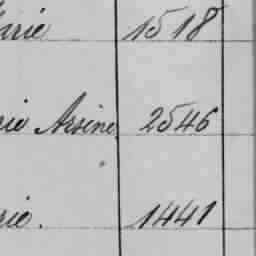 arie 1518
rie Arsène 2546
rie. 1441